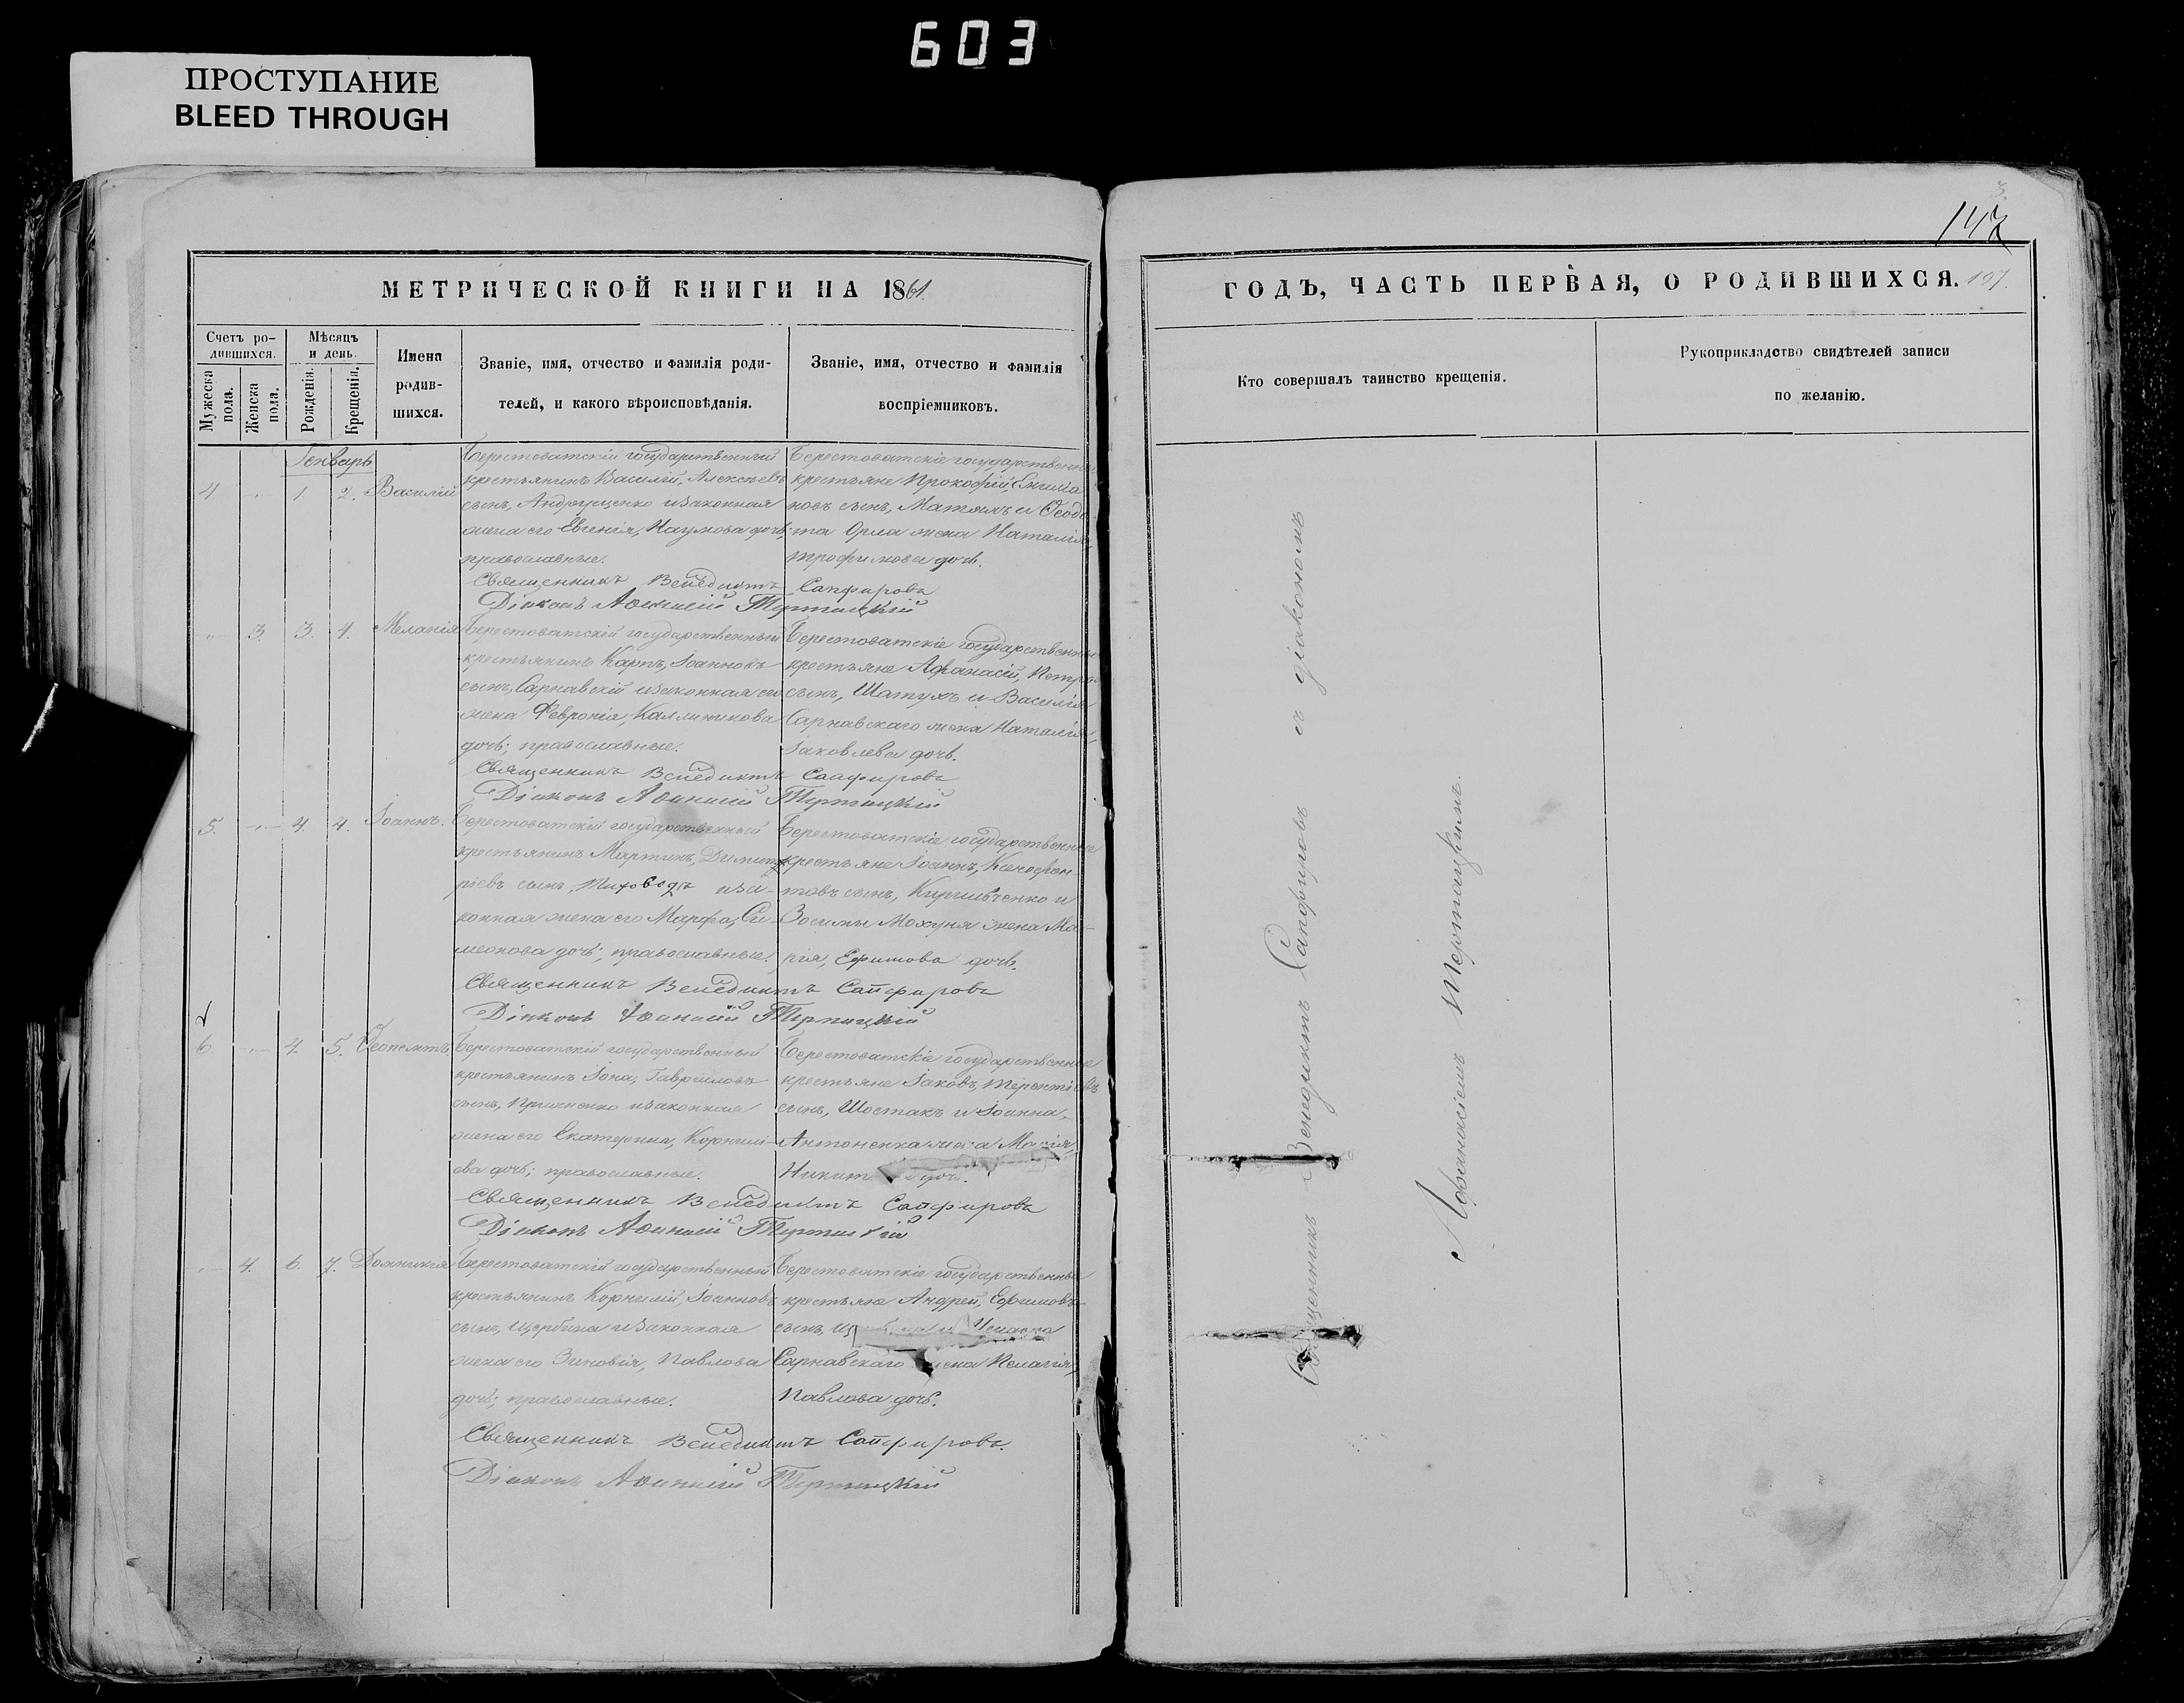 603
ПРОСТУПАНИЕ
BLEED THROUGH
147
МЕТРИЧЕСКОЙ КНИГИ НА 1861.
ГОДЪ, ЧАСТЬ ПЕРВАЯ, О РОДИВШИХСЯ. 107.
Счетъ ро-
дившихся.
Мужеска
пола.
Женска
пола.
Мѣсяцъ
и день.
Рожденія.
Крещенія.
Имена
родив-
шихся.
Званіе, имя, отчество и фамилія роди-
телей, и какого вѣроисповѣданія.
Званіе, имя, отчество и фамилія
воспріемниковъ.
Кто совершалъ таинство крещенія.
Рукоприкладство свидѣтелей записи
по желанію.
Генварь
4. 1. 2. Василій
Берестоватскій государственный
крестьянинъ Василій, Алексѣевъ
сынъ, Андрущенко и законная
жена его Евгенія, Наумова дочь;
православные.
Берестоватскіе государственные
крестьяне Прокофій,
новъ сынъ, и Ѳеодо
та Орла жена Наталія,
Трофимова дочь.
Священникъ Венедиктъ Сапфировъ
Діаконъ Афанасій Тертацкій
3. 3. 4. Меланія
Берестоватскій государственный
крестьянинъ Карпъ, Іоанновъ
сынъ, Сарнавскій и законная его
жена Февронія, Каллиникова
дочь; православные.
Берестоватскіе государственные
крестьяне Афанасій, Петро
сынъ, Шатухъ и Василія
Сарнавскаго жена Наталія,
Іаковлева дочь.
Священникъ Венедиктъ Сапфировъ
Діаконъ Афанасій Тертацкій
5. 4. 4. Іоаннъ.
Берестоватскій государственный
крестьянинъ Мартинъ, Димит-
ріевъ сынъ, Тиховодъ и за-
конная жена его Марфа, Си-
меонова дочь; православные.
Берестоватскіе государственные
крестьяне Іоаннъ, Ксенофон-
товъ сынъ, Кирильченко и
Зосимы Мохуня жена Ма-
рія, Ефимова дочь.
Священникъ Венедиктъ Сапфировъ
Діаконъ Афанасій Тертацкій
6. 4. 5. Ѳеопемптъ
Берестоватскій государственный
крестьянинъ Іона, Гавриловъ
сынъ, и законная
жена его Екатерина, Корнилі-
ева дочь; православные.
Берестоватскіе государственные
крестьяне Іаковъ, Терентіевъ
сынъ, Шостакъ и Іоанна
Антоненка жена Марія,
дочь.
Священникъ Венедиктъ Сапфировъ
Діаконъ Афанасій Тертацкій
4. 6. 7. Домникія
Берестоватскій государственный
крестьянинъ Корнилій, Іоанновъ
сынъ, Щербина и законная
жена его Зиновія, Павлова
дочь; православные.
Берестоватскіе государственные
крестьяне Андрей, Ефимовъ
сынъ,
Сарнавскаго жена Пелагія,
Павлова дочь.
Священникъ Венедиктъ Сапфировъ.
Діаконъ Афанасій Тертацкій
Священникъ Венедиктъ Сапфировъ съ діакономъ
Афанасіемъ Тертацкимъ.